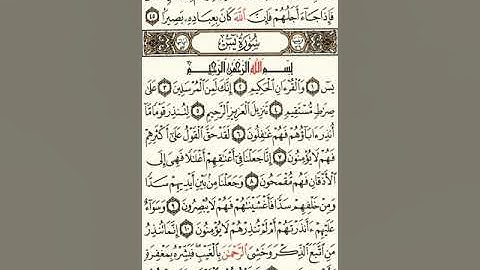 فَإِذَا جَآءَ أَجَلُهُمْ فَإِنَّ ٱللَّهَ كَانَ بِعِبَادِهِۦ بَصِيرًۢا ٤٥
سُورَةُ يسٓ
بِسْمِ ٱللَّهِ ٱلرَّحْمَٰنِ ٱلرَّحِيمِ
يسٓ ١ وَٱلْقُرْءَانِ ٱلْحَكِيمِ ٢ إِنَّكَ لَمِنَ ٱلْمُرْسَلِينَ ٣ عَلَىٰ
صِرَٰطٍ مُّسْتَقِيمٍ ٤ تَنزِيلَ ٱلْعَزِيزِ ٱلرَّحِيمِ ٥ لِتُنذِرَ قَوْمًا مَّآ
أُنذِرَ ءَابَآؤُهُمْ فَهُمْ غَٰفِلُونَ ٦ لَقَدْ حَقَّ ٱلْقَوْلُ عَلَىٰٓ أَكْثَرِهِمْ
فَهُمْ لَا يُؤْمِنُونَ ٧ إِنَّا جَعَلْنَا فِىٓ أَعْنَٰقِهِمْ أَغْلَٰلًا فَهِىَ إِلَى
ٱلْأَذْقَانِ فَهُم مُّقْمَحُونَ ٨ وَجَعَلْنَا مِنۢ بَيْنِ أَيْدِيهِمْ سَدًّا
وَمِنْ خَلْفِهِمْ سَدًّا فَأَغْشَيْنَٰهُمْ فَهُمْ لَا يُبْصِرُونَ ٩ وَسَوَآءٌ
عَلَيْهِمْ ءَأَنذَرْتَهُمْ أَمْ لَمْ تُنذِرْهُمْ لَا يُؤْمِنُونَ ١٠ إِنَّمَا تُنذِرُ
مَنِ ٱتَّبَعَ ٱلذِّكْرَ وَخَشِىَ ٱلرَّحْمَٰنَ بِٱلْغَيْبِ فَبَشِّرْهُ بِمَغْفِرَةٍ